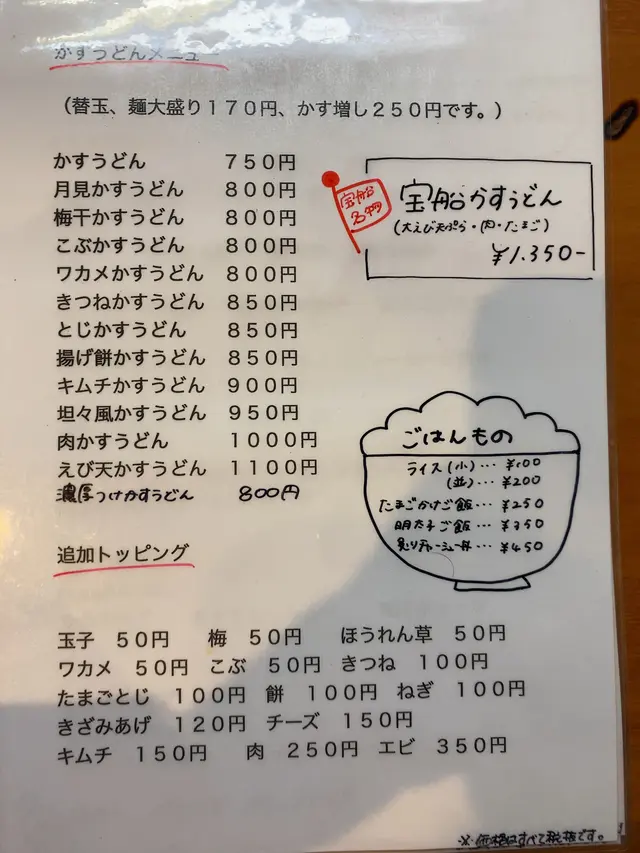 かすうどんメニュー
（替玉、麺大盛り１７０円、かす増し２５０円です。）
かすうどん ７５０円
月見かすうどん ８００円
梅干かすうどん ８００円
こぶかすうどん ８００円
ワカメかすうどん ８００円
きつねかすうどん ８５０円
とじかすうどん ８５０円
揚げ餅かすうどん ８５０円
キムチかすうどん ９００円
坦々風かすうどん ９５０円
肉かすうどん １０００円
えび天かすうどん １１００円
濃厚つけかすうどん 800円
宝船
宝船かすうどん
(大えび天ぷら・肉・たまご)
¥1.350-
ごはんもの
ライス(小)… ¥100
(並)… ¥200
たまごかけご飯… ¥250
明太子ご飯… ¥350
炙りチャーシュー丼… ¥450
追加トッピング
玉子 ５０円 梅 ５０円 ほうれん草 ５０円
ワカメ ５０円 こぶ ５０円 きつね １００円
たまごとじ １００円 餅 １００円 ねぎ １００円
きざみあげ １２０円 チーズ １５０円
キムチ １５０円 肉 ２５０円 エビ ３５０円
※価格はすべて税抜です。